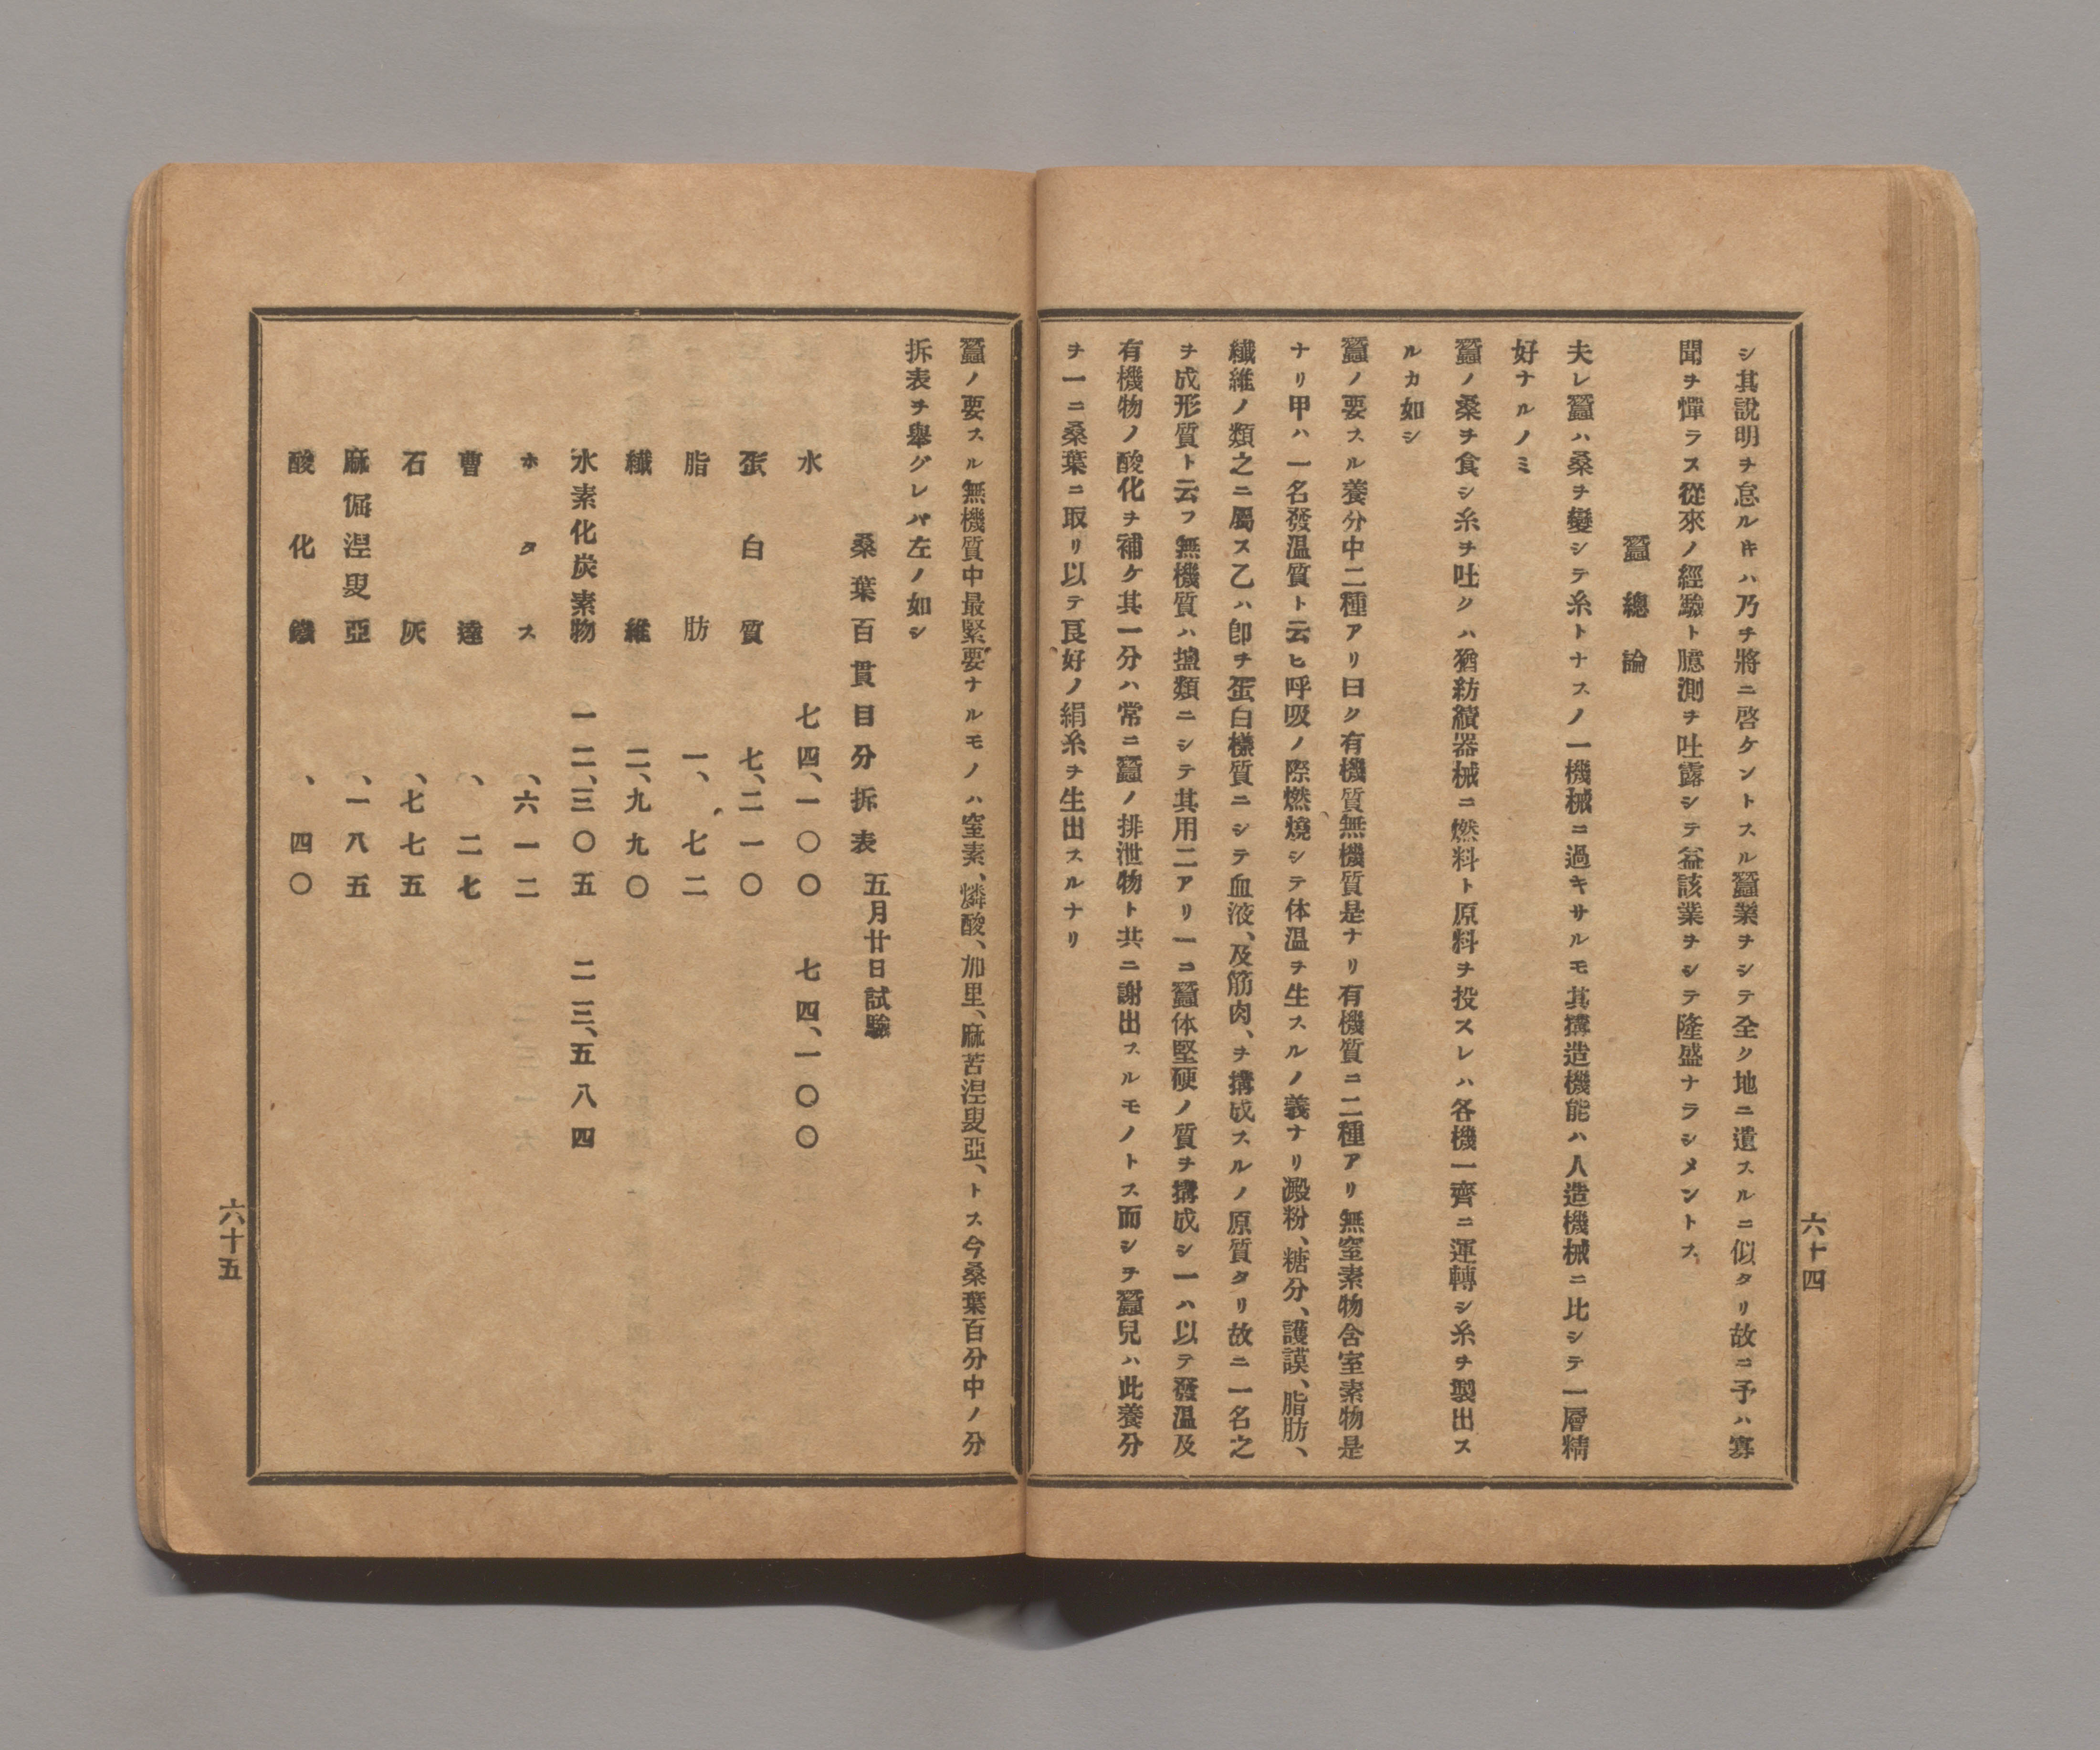 シ其說明ヲ怠ルキハ乃チ將ニ啓ケントスル蠶業ヲシテ全ク地ニ遺スルニ似タリ故ニ予ハ寡
聞ヲ憚ラス從來ノ經驗ト臆測ヲ吐露シテ益該業ヲシテ隆盛ナラシメントス
蠶總論
夫レ蠶ハ桑ヲ變シテ糸トナスノ一機械ニ過キサルモ其搆造機能ハ人造機械ニ比シテ一層精
好ナルノミ
蠶ノ桑ヲ食シ糸ヲ吐クハ猶紡績器械ニ燃料ト原料ヲ投スレハ各機一齊ニ運轉シ糸ヲ製出ス
ルカ如シ
蠶ノ要スル養分中二種アリ曰ク有機質無機質是ナリ有機質ニ二種アリ無窒素物含窒素物是
ナリ甲ハ一名發温質ト云ヒ呼吸ノ際燃燒シテ体温ヲ生スルノ義ナリ澱粉、糖分、護謨、脂肪、
纎維ノ類之ニ屬ス乙ハ卽チ蛋白樣質ニシテ血液、及筋肉、ヲ搆成スルノ原質タリ故ニ一名之
ヲ成形質ト云フ無機質ハ塩類ニシテ其用二アリ一ニ蠶体堅硬ノ質ヲ搆成シ一ハ以テ發温及
有機物ノ酸化ヲ補ケ其一分ハ常ニ蠶ノ排泄物ト共ニ謝出スルモノトス而シテ蠶兒ハ此養分
ヲ一ニ桑葉ニ取リ以テ良好ノ絹糸ヲ生出スルナリ
六十四
蠶ノ要スル無機質中最緊要ナルモノハ窒素、燐酸、加里、麻苦涅叟亞、トス今桑葉百分中ノ分
拆表ヲ舉グレバ左ノ如シ
桑葉百貫目分拆表 五月廿日試驗
水 七四、一〇〇 七四、一〇〇
蛋白質 七、二一〇
脂肪 一、七二
纎維 二、九九〇
水素化炭素物 一二、三〇五 二三、五八四
ホタス 、六一二
曹達 、二七
石灰 、七七五
麻倔涅叟亞 、一八五
酸化鐵 、四〇
六十五